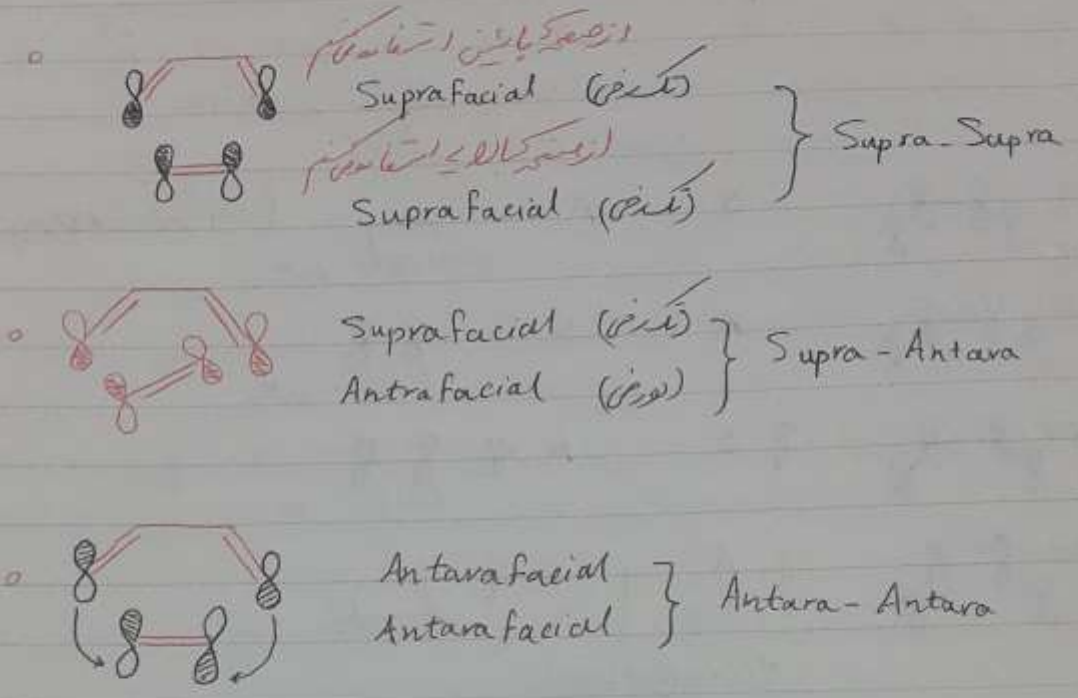 از صفحه پایینی استفاده می‌کنیم
Suprafacial (تک‌رخی)
از صفحه بالایی استفاده می‌کنیم
Suprafacial (تک‌رخی)
} Supra-Supra
Suprafacial (تک‌رخی)
Antrafacial (دورخی)
} Supra - Antara
Antarafacial
Antarafacial
} Antara-Antara